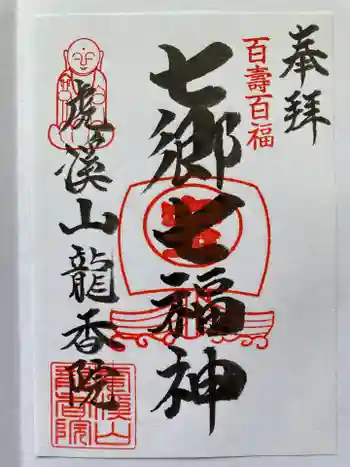 奉拝
百壽百福
七郷七福神
虎溪山龍香院
虎溪山
龍香院